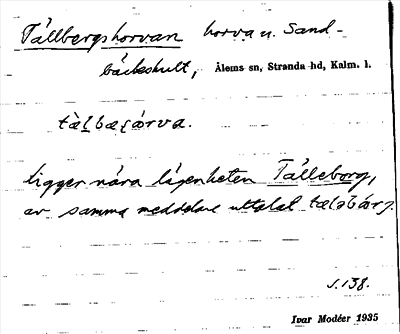 Tållbergshorvan horva u. Sand-
bäckshult, Ålems sn, Stranda hd, Kalm. l.
tàlbæςórva.
ligger nära lägenheten Tålleborg,
av samma meddelare uttalat tæləbárj.
S. 138.
Ivar Modéer 1935